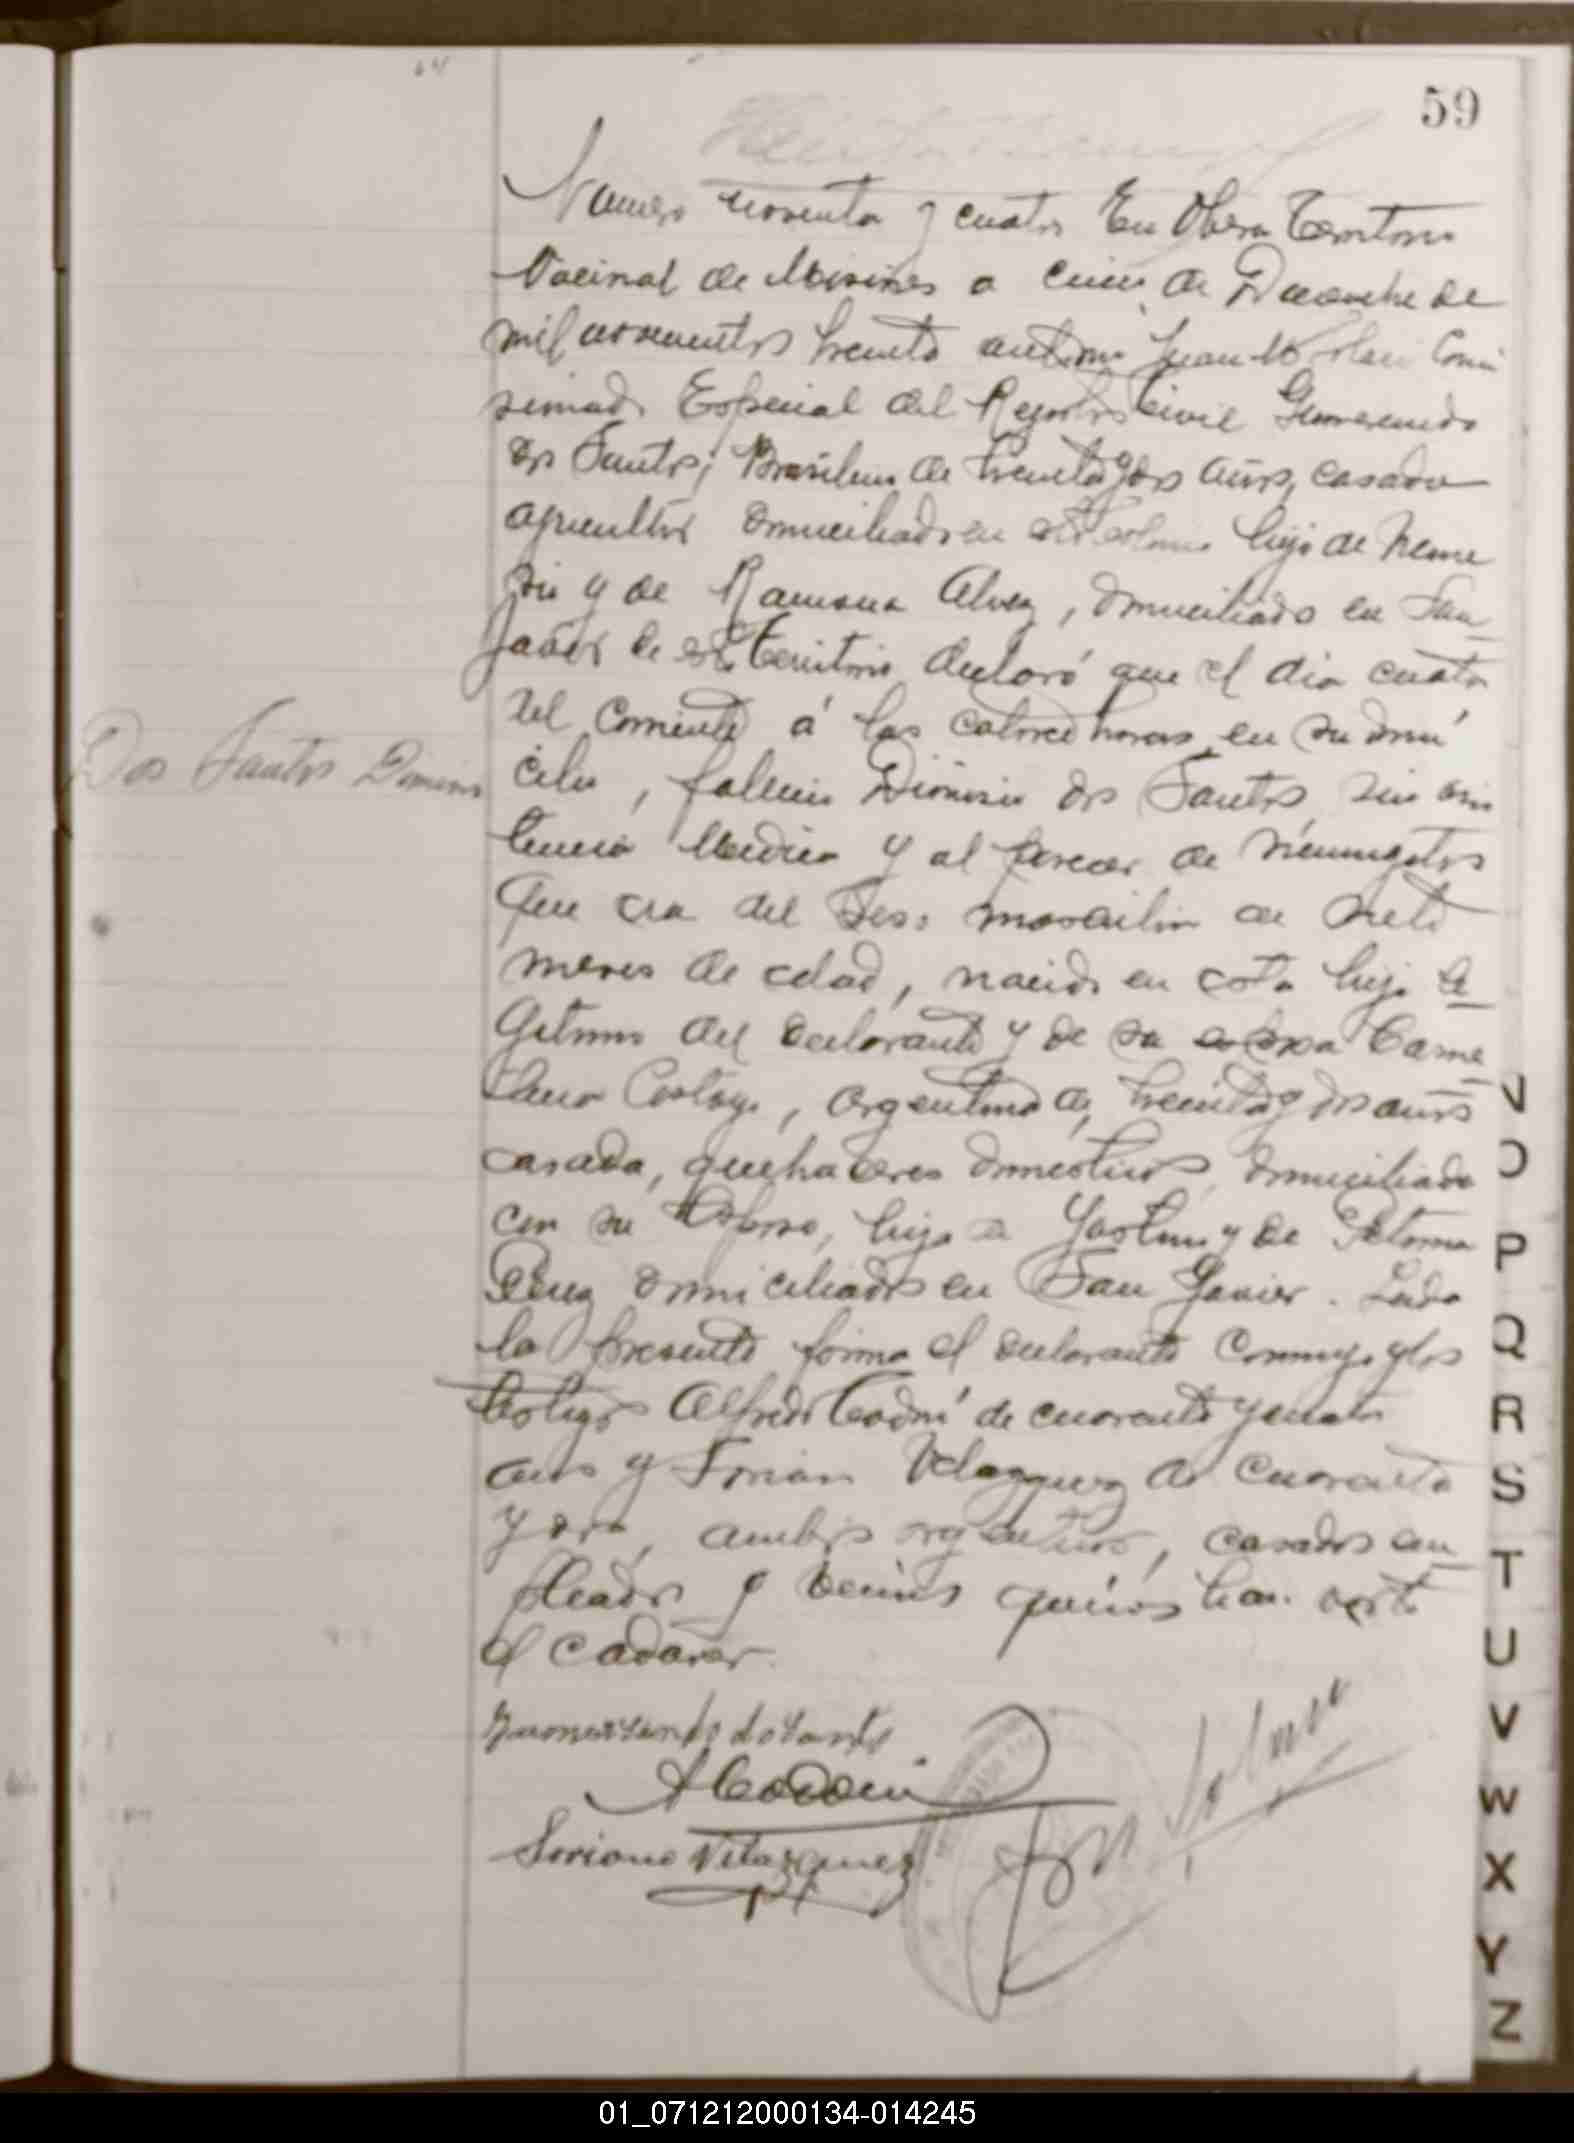 59
Numero noventa y cuatro En Obera Territorio
Nacional de Misiones a cinco de Diciembre de
mil novecientos treinta ante mi Juan M Comi
sionado Especial del Registro Civil Gumersindo
dos Santos, Brasilero de treinta y dos años, casado
agricultor domiciliado en esta colonia hijo de Neme
sio y de Ramona Alvez, domiciliado en San
Javier de este Territorio declaró que el dia cuatro
del corriente á las catorce horas en su domi
Dos Santos Dionisio
cilio, fallecio Dionisio dos Santos sin asis
tencia Medica y al parecer de
que era del sexo masculino de siete
meses de edad, nacido en esta hijo le
gitimo del declarante y de su esposa
argentina de treinta y dos años
casada, quehaceres domesticos, domiciliada
con su esposo, hija de y de Petrona
domiciliados en San Javier. Leida
la presente firma el declarante conmigo y los
testigos Alfredo de cuarenta y cuatro
años y Velazquez de cuarenta
y dos, ambos argentinos, casados em
pleados y vecinos quienes han visto
el cadaver.
Gumersindo do Santo
Soriano Velazquez
N
O
P
Q
R
S
T
U
V
W
X
Y
Z
01_071212000134-014245